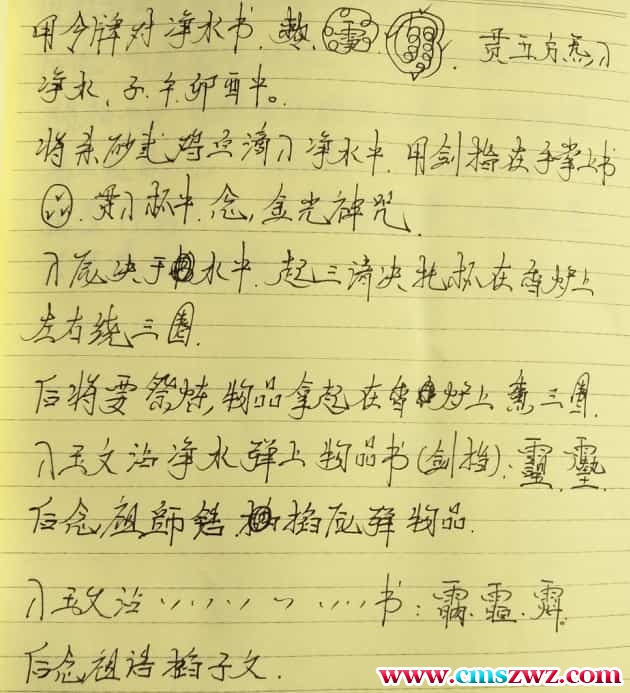 用令牌对净水书.敕.贯五方炁入
净水,子.午.卯酉中。
将朱砂 点滴入净水中.用剑指在手掌上书
贯入杯中.念,金光神咒.
入 决于水中.起三清决托杯在香炉上
左右绕三圈.
后将要祭炼,物品拿起在香炉上熏三圈.
入玉文沾净水弹上物品书(剑指):
后念祖師 掐 弹物品.
入玉文沾、、、、、、、、书:
后念祖 掐子文.
www.cmszwz.com